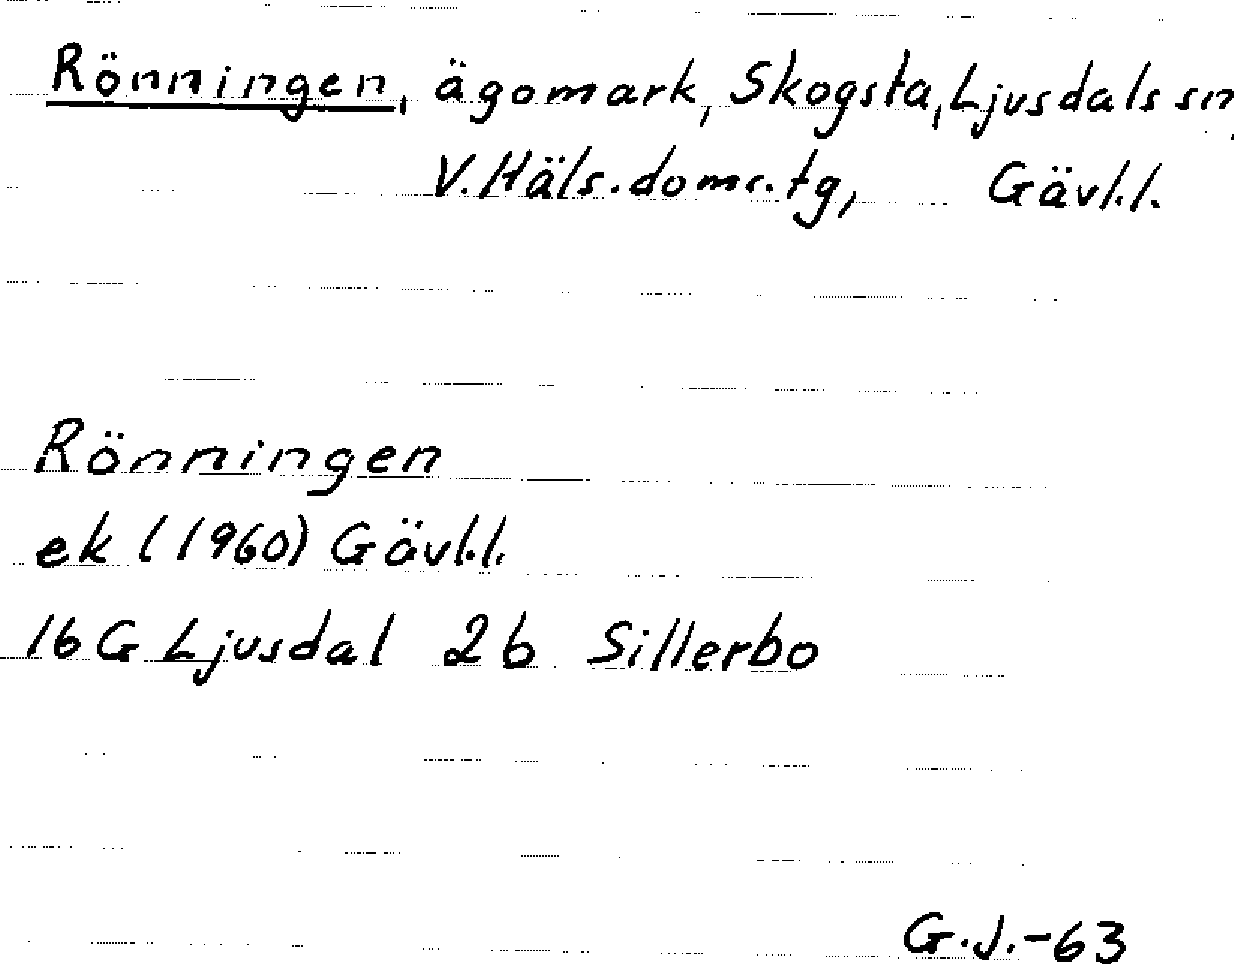 Rönningen, ägomark, Skogsta, Ljusdals sn,
V. Häls. doms. tg, Gävl.l.
Rönningen
ek (1960) Gävl.l.
16 G Ljusdal 2b Sillerbo
G.J.-63